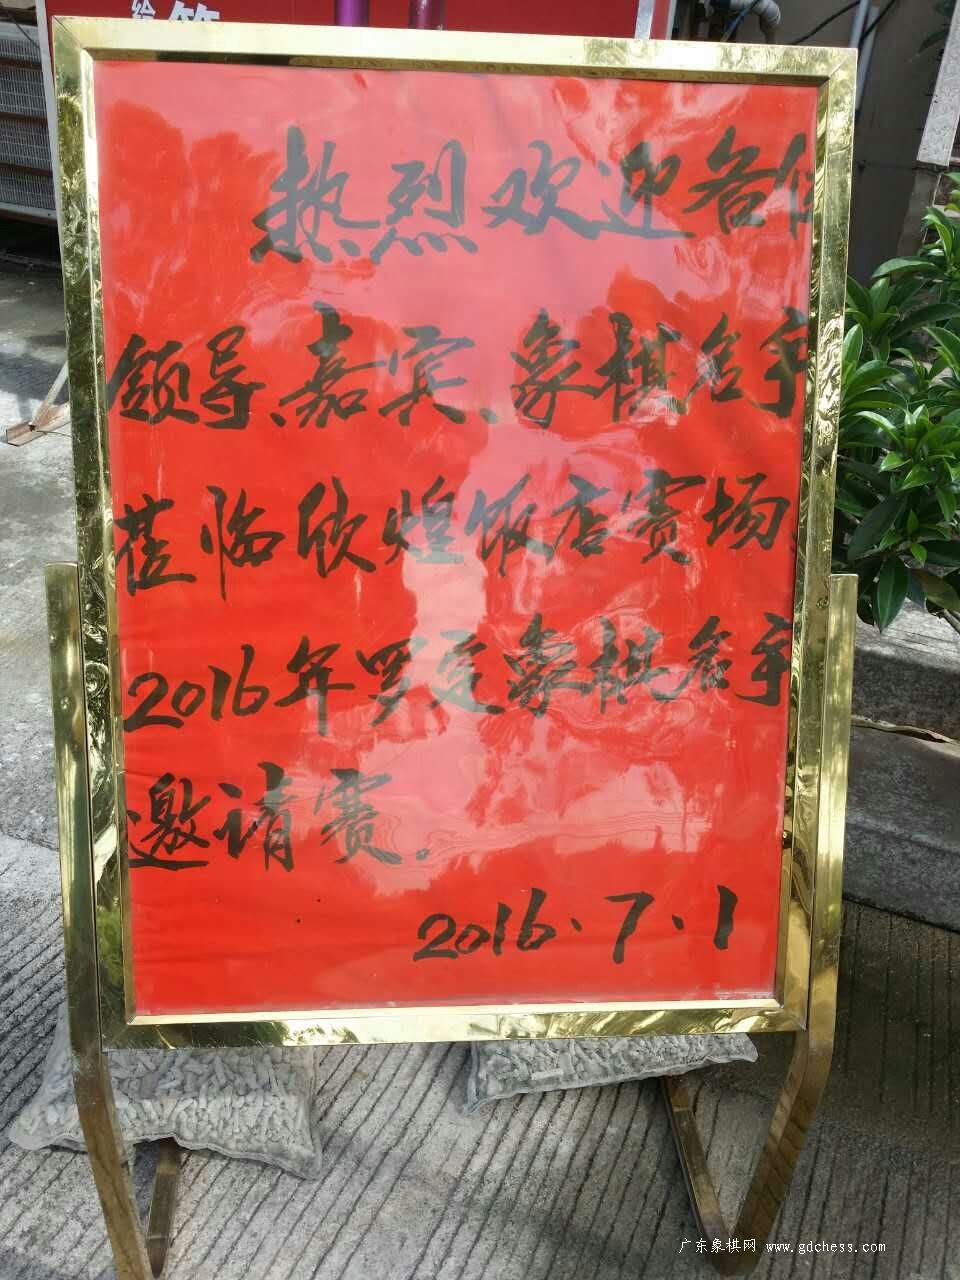 给
热烈欢迎各位
领导、嘉宾、象棋名手
莅临欣煌饭店赛场
2016年罗定象棋名手
邀请赛.
2016.7.1
广东象棋网 www.gdchess.com